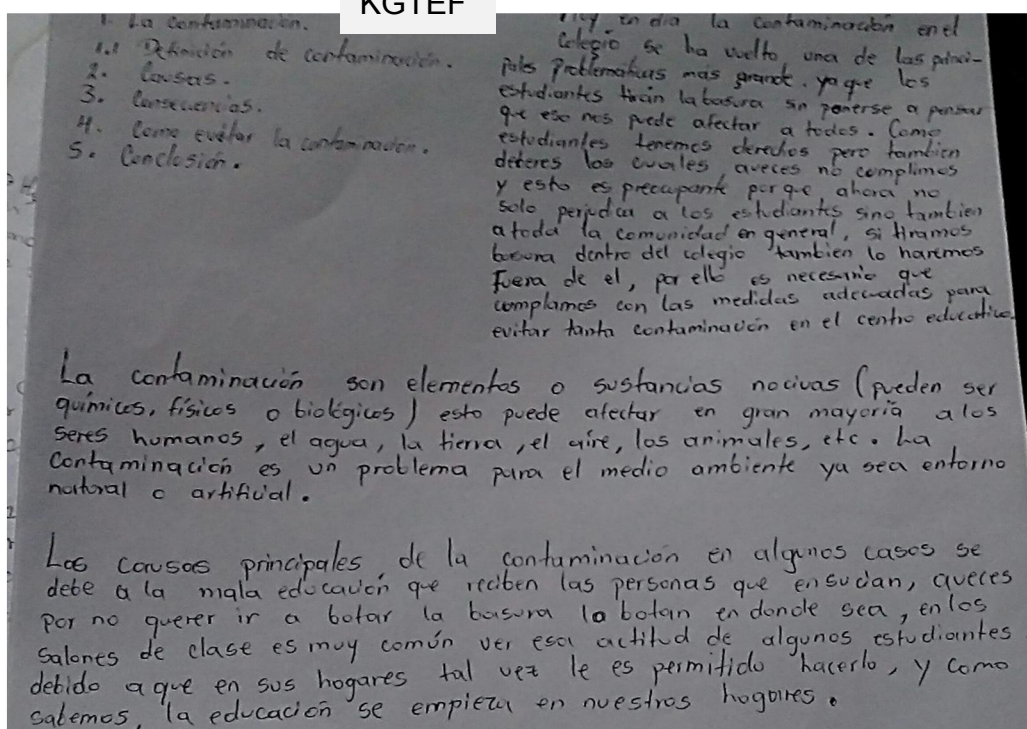 KGTEF
1. La contaminación.
1.1 Definición de contaminación.
2. Causas.
3. Consecuencias.
4. Como evitar la contaminación.
5. Conclusión.
Hoy en dia la contaminación en el
Colegio se ha vuelto una de las princi-
pales Problematicas más grande. ya que los
estudiantes tiran la basura sin ponerse a pensar
que eso nos puede afectar a todos. Como
estudiantes tenemos derechos pero tambien
deberes los cuales aveces no complimos
y esto es preocupante porque ahora no
solo perjudica a los estudiantes sino tambien
a toda la comunidad en general, si tiramos
basura dentro del colegio tambien lo haremos
Fuera de el, por ello es necesario que
complamos con las medidas adecuadas para
evitar tanta contaminación en el centro educativo.
La contaminación son elementos o sustancias nocivas (pueden ser
químicos, físicos o biológicos) esto puede afectar en gran mayoría a los
seres humanos, el agua, la tierra, el aire, los animales, etc. La
contaminación es un problema para el medio ambiente ya sea entorno
natural o artificial.
Las causas principales de la contaminación en algunos casos se
debe a la mala educación que reciben las personas que ensucian, aveces
por no querer ir a botar la basura la botan en donde sea, en los
salones de clase es muy común ver esa actitud de algunos estudiantes
debido a que en sus hogares tal vez le es permitido hacerlo, y como
sabemos, la educación se empieza en nuestros hogares.